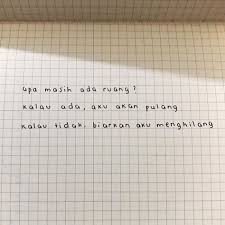 apa masih ada ruang?
kalau ada, aku akan pulang
kalau tidak. biarkan aku menghilang